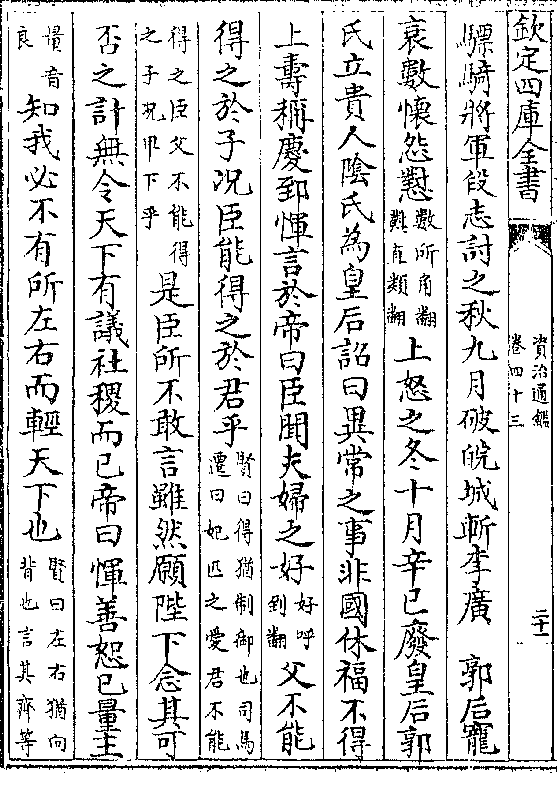 欽定四庫全書
資治通鑑
卷四十三
二十一
驃騎將軍段志討之秋九月破皖城斬李廣　郭后寵
衰數懷怨懟數所角翻懟直類翻上怒之冬十月辛巳廢皇后郭
氏立貴人陰氏為皇后詔曰異常之事非國休福不得
上壽稱慶郅惲言於帝曰臣聞夫婦之好好呼到翻父不能
得之於子况臣能得之於君乎賢曰得猶制御也司馬遷曰妃匹之愛君不能
得之臣父不能得之子况卑下乎是臣所不敢言雖然願陛下念其可
否之計無令天下有議社稷而已帝曰惲善恕己量主
量音良知我必不有所左右而輕天下也賢曰左右猶向背也言其齊等